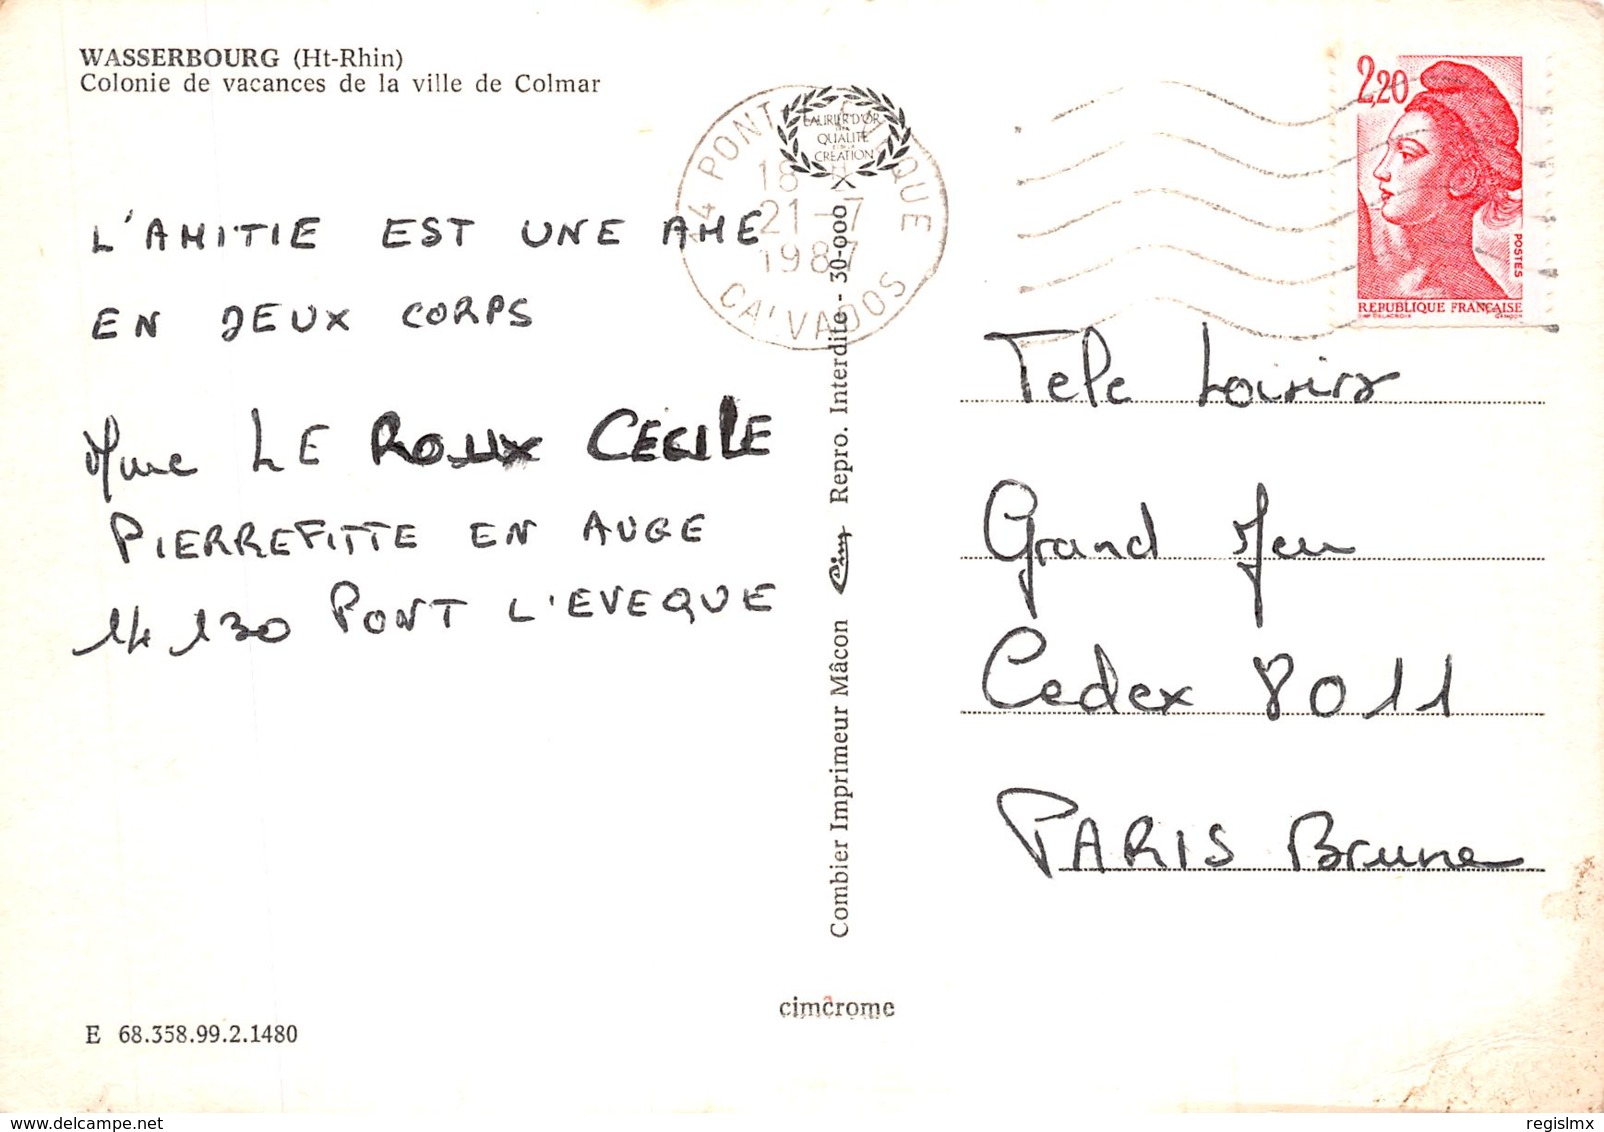 WASSERBOURG (Ht-Rhin)
Colonie de vacances de la ville de Colmar
14 PONT L'EVEQUE
18 H
21-7
1987
CALVADOS
LAURIER D'OR
DE LA
QUALITÉ
ET DE LA
CRÉATION
2,20
POSTES
REPUBLIQUE FRANÇAISE
DELACROIX GANDON
L'AMITIE EST UNE AME
EN DEUX CORPS
Mme LE ROUX CECILE
PIERREFITTE EN AUGE
14 130 PONT L'EVEQUE
Combier Imprimeur Mâcon Cim Repro. Interdite - 30-000
Tele Loisirs
Grand Jeu
Cedex 8011
PARIS Brune
cimcrome
E 68.358.99.2.1480
www.delcampe.net
regislmx